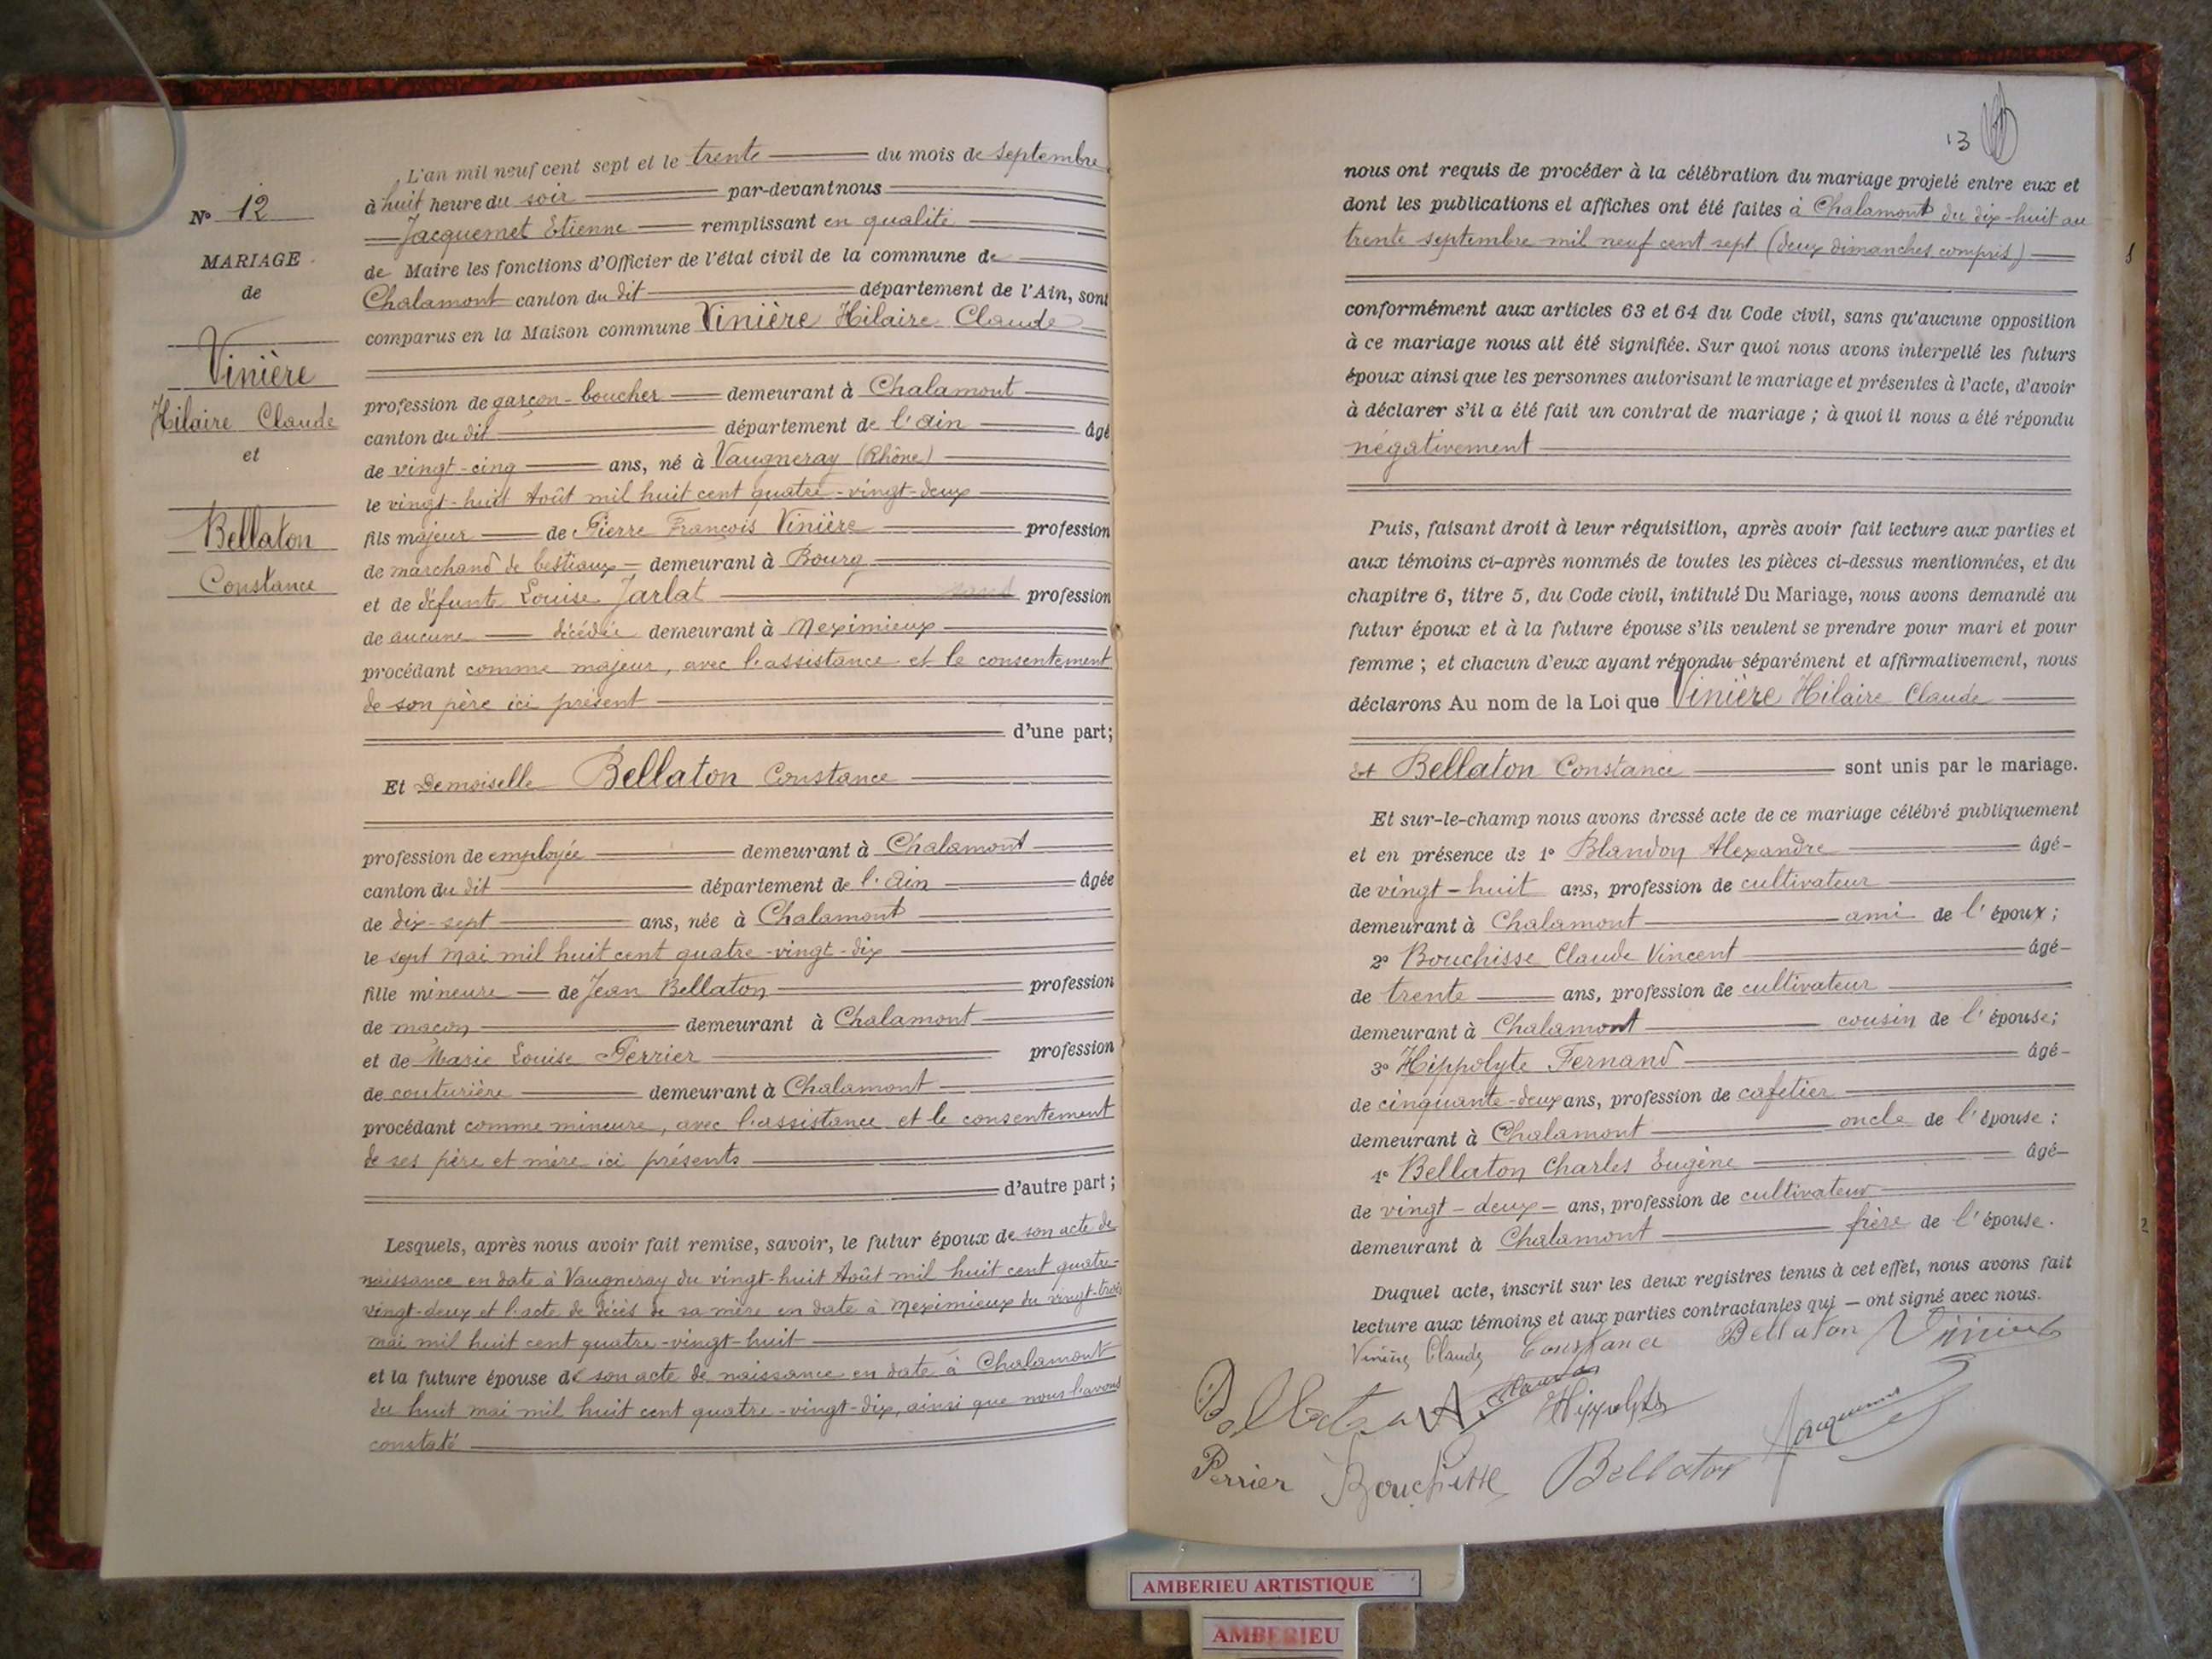 N° 12
MARIAGE
de
Vinière
Hilaire Claude
et
Bellaton
Constance
L'an mil neuf cent sept et le trente du mois de septembre
à huit heure du soir par-devant nous
Jacquemet Etienne remplissant en qualité
de Maire les fonctions d'Officier de l'état civil de la commune de
Chalamont canton du dit département de l'Ain, sont
comparus en la Maison commune Vinière Hilaire Claude
profession de garçon-boucher demeurant à Chalamont
canton du dit département de l'Ain âgé
de vingt-cinq ans, né à Vaugneray (Rhône)
le vingt-huit Août mil huit cent quatre-vingt-deux
fils majeur de Pierre François Vinière profession
de marchand de bestiaux demeurant à Bourg
et de défunte Louise Jarlat profession
de aucune décédée demeurant à Meximieux
procédant comme majeur, avec l'assistance et le consentement
de son père ici présent
d'une part;
Et Demoiselle Bellaton Constance
profession de employée demeurant à Chalamont
canton du dit département de l'Ain âgée
de dix-sept ans, née à Chalamont
le sept Mai mil huit cent quatre-vingt-dix
fille mineure de Jean Bellaton profession
de maçon demeurant à Chalamont
et de Marie Louise Perrier profession
de couturière demeurant à Chalamont
procédant comme mineure, avec l'assistance et le consentement
de ses père et mère ici présents
d'autre part;
Lesquels, après nous avoir fait remise, savoir, le futur époux de son acte de
naissance en date à Vaugneray du vingt-huit Août mil huit cent quatre-
vingt-deux et l'acte de décès de sa mère en date à Meximieux du vingt-trois
mai mil huit cent quatre-vingt-huit
et la future épouse de son acte de naissance en date à Chalamont
du huit mai mil huit cent quatre-vingt-dix, ainsi que nous l'avons
constaté
13
nous ont requis de procéder à la célébration du mariage projeté entre eux et
dont les publications et affiches ont été faites à Chalamont du dix-huit au
trente septembre mil neuf cent sept (deux dimanches compris)
conformément aux articles 63 et 64 du Code civil, sans qu'aucune opposition
à ce mariage nous ait été signifiée. Sur quoi nous avons interpellé les futurs
époux ainsi que les personnes autorisant le mariage et présentes à l'acte, d'avoir
à déclarer s'il a été fait un contrat de mariage; à quoi il nous a été répondu
négativement
Puis, faisant droit à leur réquisition, après avoir fait lecture aux parties et
aux témoins ci-après nommés de toutes les pièces ci-dessus mentionnées, et du
chapitre 6, titre 5, du Code civil, intitulé Du Mariage, nous avons demandé au
futur époux et à la future épouse s'ils veulent se prendre pour mari et pour
femme; et chacun d'eux ayant répondu séparément et affirmativement, nous
déclarons Au nom de la Loi que Vinière Hilaire Claude
et Bellaton Constance sont unis par le mariage.
Et sur-le-champ nous avons dressé acte de ce mariage célébré publiquement
et en présence de 1° Blandon Alexandre âgé
de vingt-huit ans, profession de cultivateur
demeurant à Chalamont ami de l'époux;
2° Bouchisse Claude Vincent âgé
de trente ans, profession de cultivateur
demeurant à Chalamont cousin de l'épouse;
3° Hippolyte Fernand âgé
de cinquante-deux ans, profession de cafetier
demeurant à Chalamont oncle de l'épouse;
4° Bellaton Charles Eugène âgé
de vingt-deux ans, profession de cultivateur
demeurant à Chalamont frère de l'épouse.
Duquel acte, inscrit sur les deux registres tenus à cet effet, nous avons fait
lecture aux témoins et aux parties contractantes qui ont signé avec nous.
Vinière Claude Constance Bellaton Vinière
Bellaton A. Blandon Hippolyte
Perrier Bouchisse Bellaton Jacquemet
AMBERIEU ARTISTIQUE
AMBERIEU